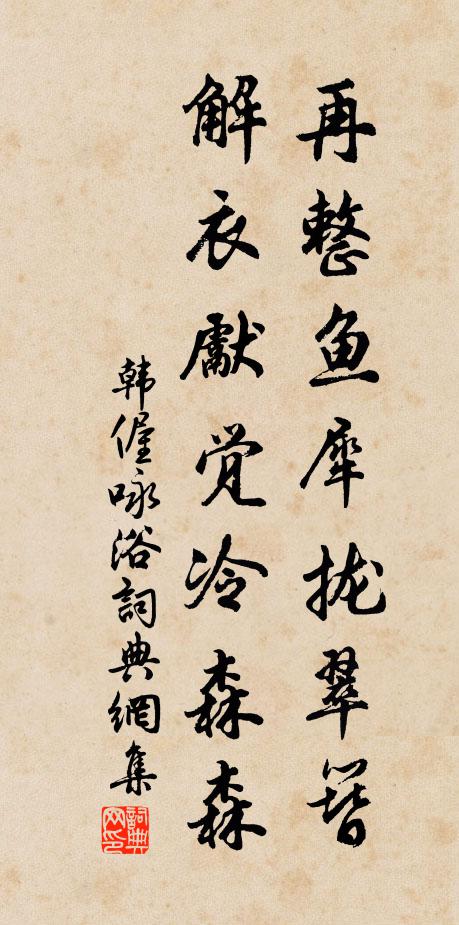 再整鱼犀拢翠簪
解衣獻觉冷森森
韩偓咏浴詞典網集
詞典网印